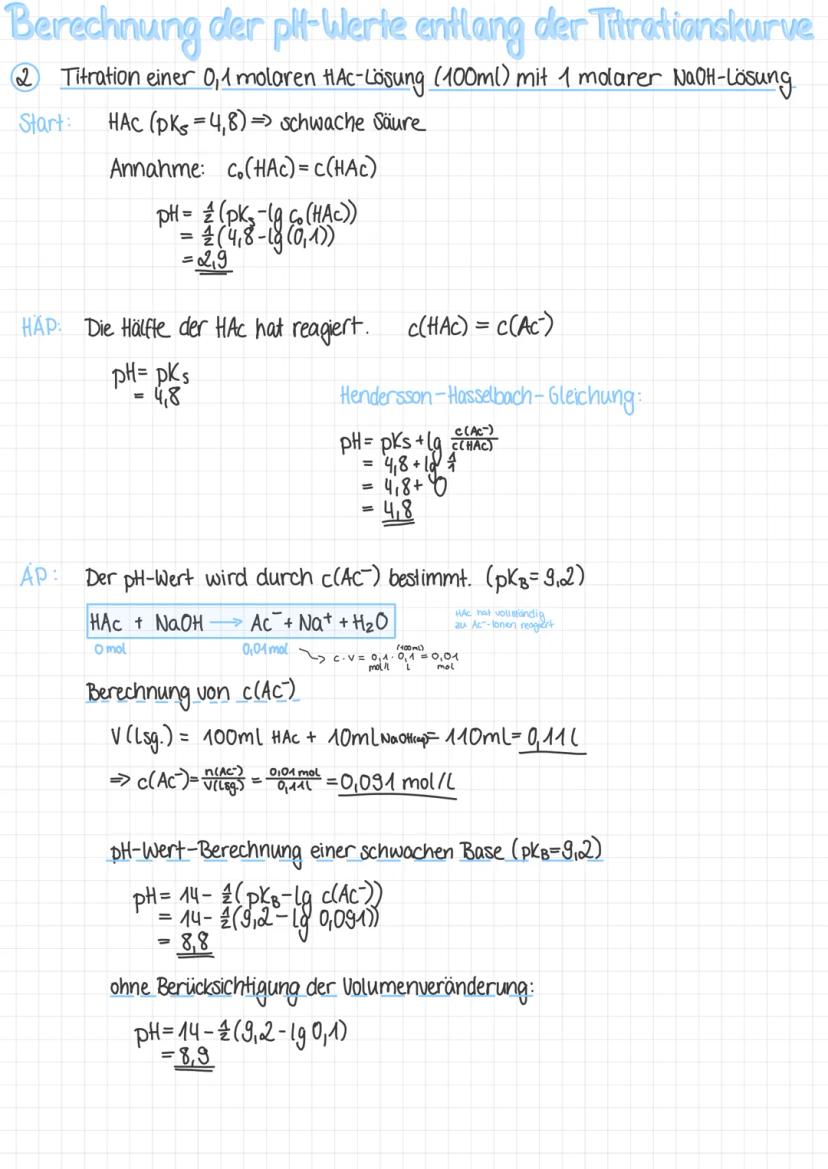 Berechnung der pH-Werte entlang der Titrationskurve
2 Titration einer 0,1 molaren HAc-Lösung (100ml) mit 1 molarer NaOH-Lösung
Start: HAc (pKs = 4,8) => schwache Säure
Annahme: c₀(HAc) = c(HAc)
pH = ½ (pKs - lg c₀(HAc))
= ½ (4,8 - lg (0,1))
= 2,9
HÄP: Die Hälfte der HAc hat reagiert. c(HAc) = c(Ac⁻)
pH = pKs
= 4,8
Hendersson-Hasselbach-Gleichung:
pH = pKs + lg c(Ac⁻)/c(HAc)
= 4,8 + lg 1/1
= 4,8 + 0
= 4,8
ÄP: Der pH-Wert wird durch c(Ac⁻) bestimmt. (pKB = 9,2)
HAc + NaOH → Ac⁻ + Na⁺ + H₂O
HAc hat vollständig
zu Ac⁻-Ionen reagiert
0 mol 0,01 mol → c · V = 0,1 mol/l · 0,1 l (100ml) = 0,01 mol
Berechnung von c(Ac⁻)
V (Lsg.) = 100ml HAc + 10ml NaOH(aq) = 110ml = 0,11 l
=> c(Ac⁻) = n(Ac⁻)/V(Lsg.) = 0,01 mol/0,11 l = 0,091 mol/L
pH-Wert-Berechnung einer schwachen Base (pKB = 9,2)
pH = 14 - ½ (pKB - lg c(Ac⁻))
= 14 - ½ (9,2 - lg 0,091))
= 8,8
ohne Berücksichtigung der Volumenveränderung:
pH = 14 - ½ (9,2 - lg 0,1)
= 8,9